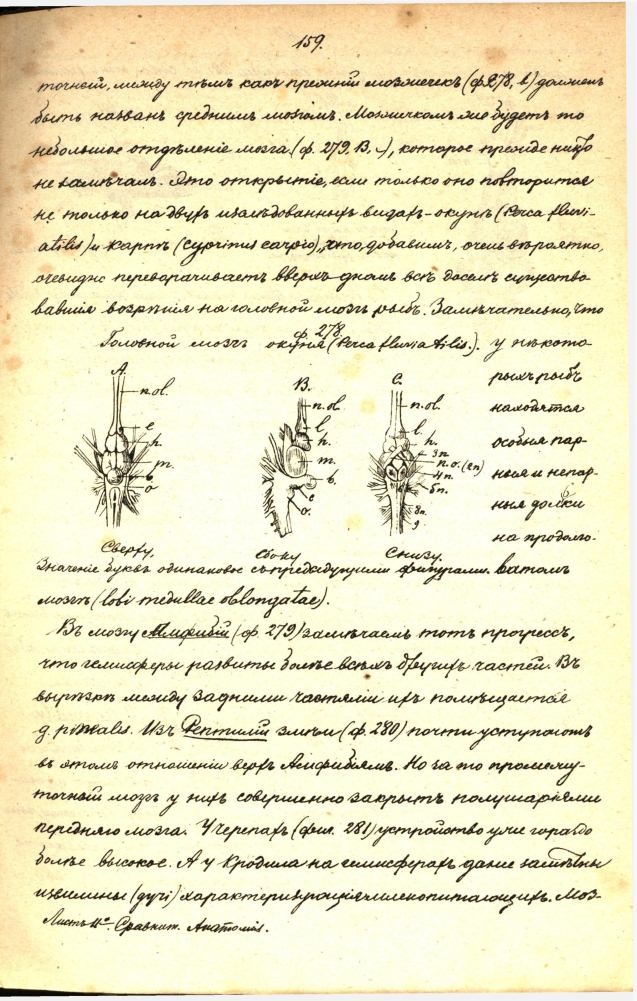 159.
точный, между тѣмъ какъ прежній мозжечекъ (ф. 278, в) долженъ
быть названъ среднимъ мозгомъ. Мозжечкомъ же будетъ то
небольшое отдѣленіе мозга (ф. 279, В, с), которое прежде никто
не замѣчалъ. Это открытіе, если только оно повторится
не только на двухъ изслѣдованныхъ видахъ - окунѣ (Perca fluvi-
atilis) и карпѣ (Cyprinus carpio), что, добавимъ, очень вѣроятно,
очевидно переворачиваетъ вверхъ дномъ всѣ доселѣ существо
вавшія возрѣнія на головной мозгъ рыбъ. Замѣчательно, что
ф 278.
Головной мозгъ окуня (Perca fluviatilis.). у нѣкото
A. B. C.
рыхъ рыбъ
находятся
особыя пар-
ныя и непар-
ныя дольки
на продолго-
n. ol.
e
h.
m.
в
o
n. ol
l
h.
m.
b.
c
o.
n. ol.
l
h.
3n
n. o. (2n)
4n
5n.
8n.
9
Сверху. Сбоку Снизу.
Значеніе буквъ одинаковое съ предыдущими фигурами. ватомъ
мозгѣ (lobi medullae oblongatae).
Въ мозгу Амфибій (ф 279) замѣчаемъ тотъ прогрессъ,
что гемисферы развиты болѣе всѣхъ другихъ частей. Въ
вырѣзкѣ между задними частями ихъ помѣщается
g. pinealis. Изъ Рептилій змѣи (ф. 280) почти уступаютъ
въ этомъ отношеніи верх Амфибіямъ. Но за то промежу-
точный мозгъ у нихъ совершенно закрытъ полушаріями
передняго мозга. У черепахъ (фиг. 281) устройство уже гораздо
болѣе высокое. А у кродила на гемисферахъ даже замѣтны
извилины (дугі) характеризующія млекопитающихъ. Моз-
Листъ 11º. Сравнит. Анатоміи.